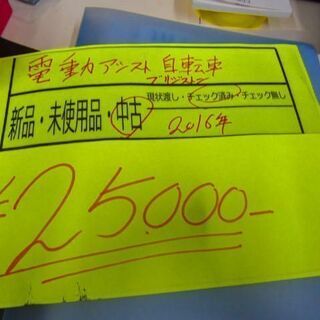 電動アシスト自転車
ブリジストン
現状渡し・チェック済み・チェック無し
新品・未使用品・中古
2016年
¥25.000-